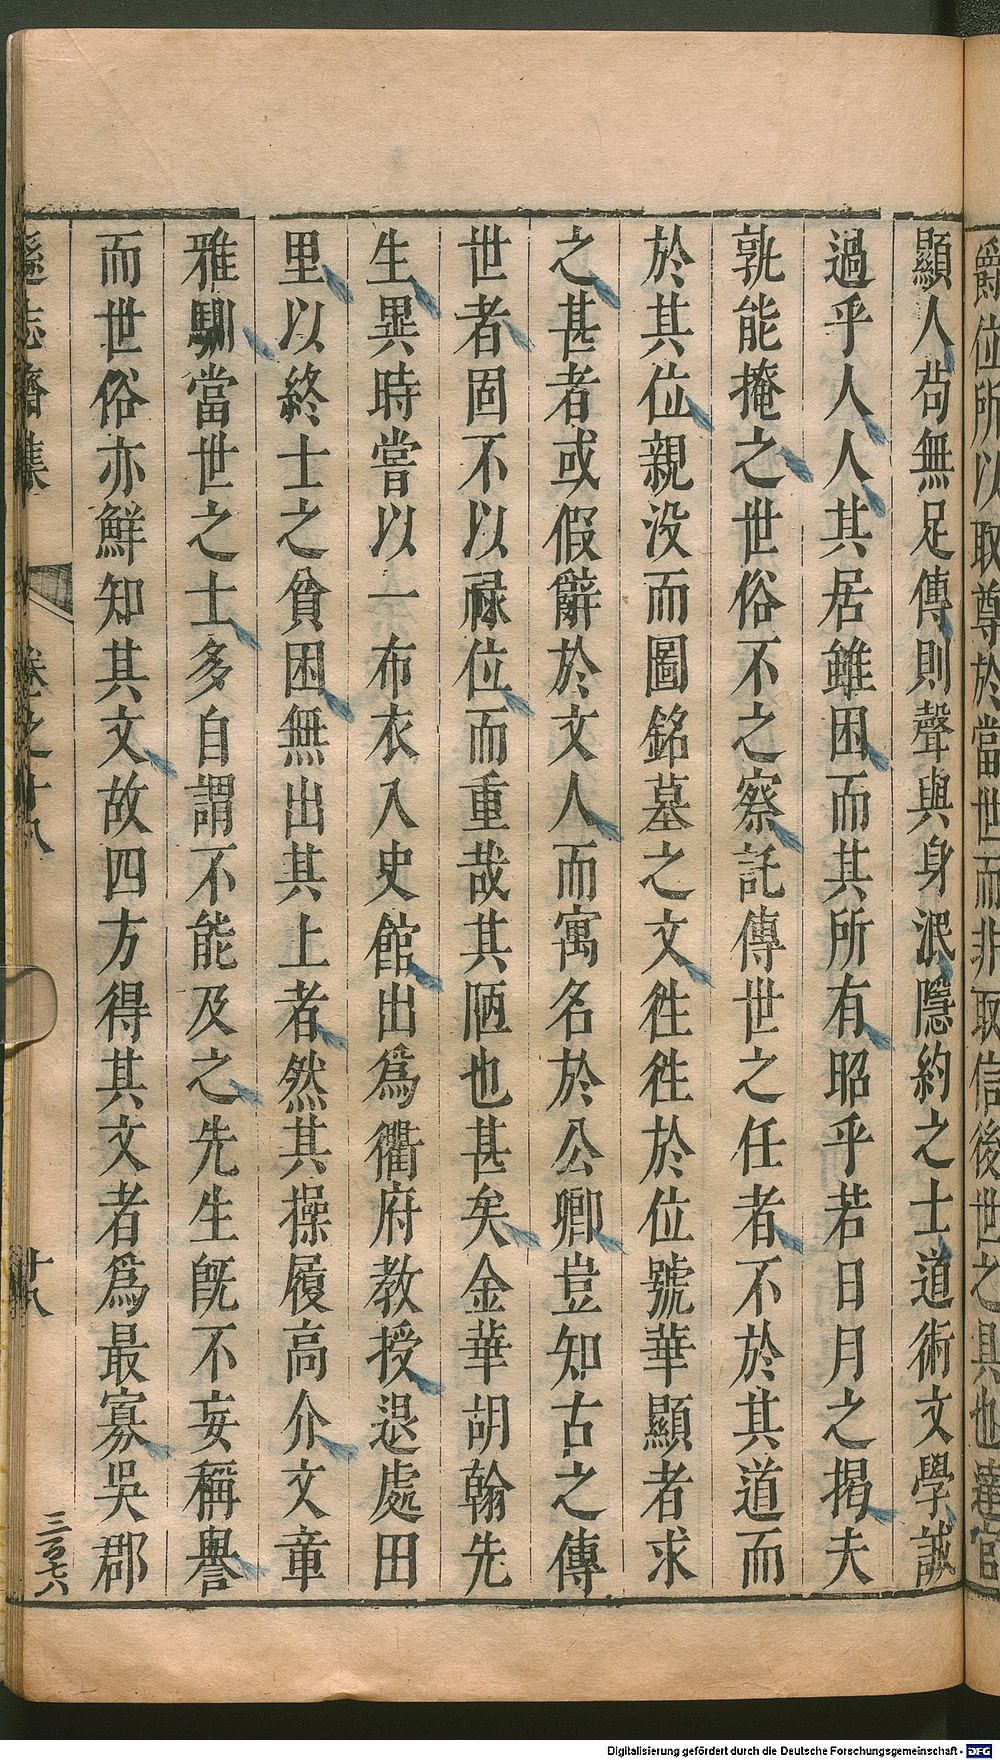 爵位所以取尊於當世而非取信後世之具也達官
顯人苟無足傳則聲與身泯隱約之士道術文學誠
過乎人人其居雖困而其所有昭乎若日月之揭夫
孰能掩之世俗不之察託傳世之任者不於其道而
於其位親没而圖銘墓之文徃徃於位號華顯者求
之甚者或假辭於文人而寓名於公卿豈知古之傳
世者固不以祿位而重哉其陋也甚矣金華胡翰先
生異時嘗以一布衣入史館出爲衢府教授退處田
里以終士之貧困無出其上者然其操履高介文章
雅馴當世之士多自謂不能及之先生旣不妄稱譽
而世俗亦鮮知其文故四方得其文者爲最寡吳郡
遜志齋集 卷之十八 廿八
三百七六
Digitalisierung gefördert durch die Deutsche Forschungsgemeinschaft - DFG